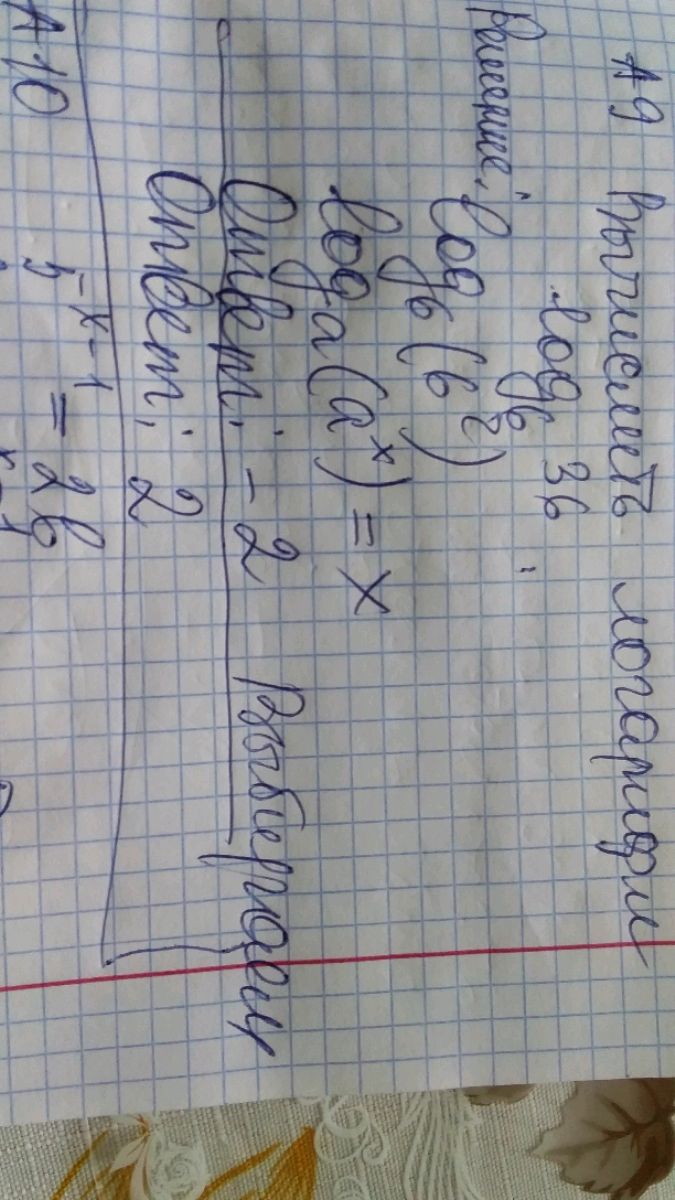 А9 Вычислить логарифм
log₆ 36
Решение: log₆ (6²)
logₐ(aˣ) = x
Ответ: -2 Выбираем
Ответ: 2
А10 5⁻ˣ⁻¹ = 26